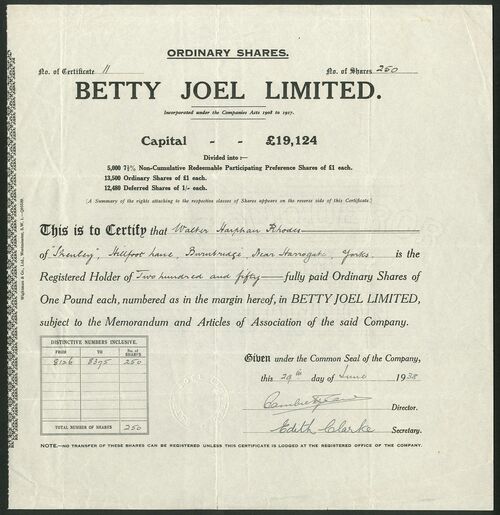 ORDINARY SHARES.
No. of Certificate 11 No. of Shares 250
BETTY JOEL LIMITED.
Incorporated under the Companies Acts 1908 to 1917.
Capital - - £19,124
Divided into :—
5,000 7½% Non-Cumulative Redeemable Participating Preference Shares of £1 each.
13,500 Ordinary Shares of £1 each.
12,480 Deferred Shares of 1/- each.
(A Summary of the rights attaching to the respective classes of Shares appears on the reverse side of this Certificate.)
This is to Certify that Walter Harphan Rhodes
of "Thenley", Hillfoot Lane, Burnbridge, Near Harrogate, Yorks. is the
Registered Holder of Two hundred and fifty fully paid Ordinary Shares of
One Pound each, numbered as in the margin hereof, in BETTY JOEL LIMITED,
subject to the Memorandum and Articles of Association of the said Company.
DISTINCTIVE NUMBERS INCLUSIVE.
FROM TO No. of SHARES
8126 8375 250
TOTAL NUMBER OF SHARES 250
Given under the Common Seal of the Company,
this 29th day of June 1938
Director.
Edith Clarke Secretary.
NOTE.—NO TRANSFER OF THESE SHARES CAN BE REGISTERED UNLESS THIS CERTIFICATE IS LODGED AT THE REGISTERED OFFICE OF THE COMPANY.